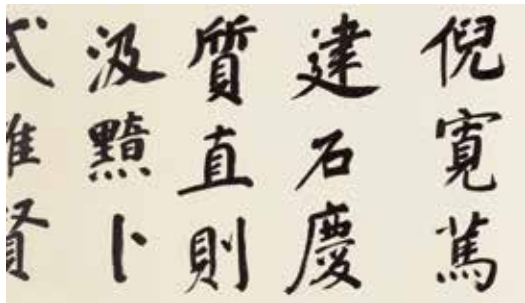 倪寬篤
建石慶
質直則
汲黯卜
式推賢